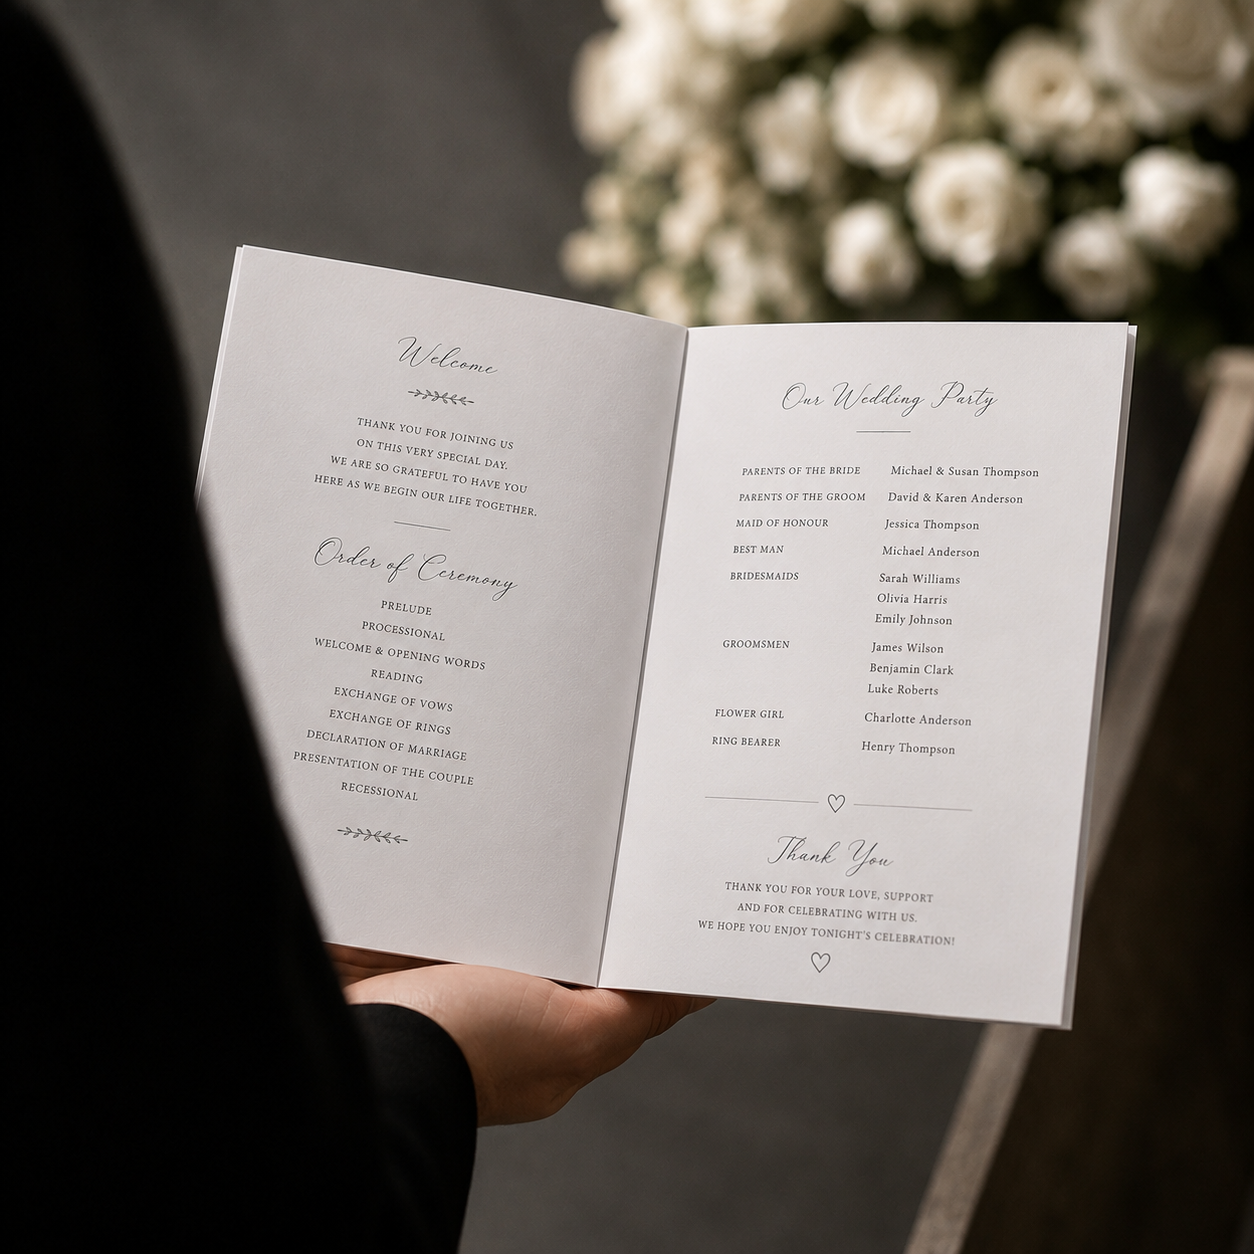 Welcome
THANK YOU FOR JOINING US
ON THIS VERY SPECIAL DAY.
WE ARE SO GRATEFUL TO HAVE YOU
HERE AS WE BEGIN OUR LIFE TOGETHER.
Order of Ceremony
PRELUDE
PROCESSIONAL
WELCOME & OPENING WORDS
READING
EXCHANGE OF VOWS
EXCHANGE OF RINGS
DECLARATION OF MARRIAGE
PRESENTATION OF THE COUPLE
RECESSIONAL
Our Wedding Party
PARENTS OF THE BRIDE Michael & Susan Thompson
PARENTS OF THE GROOM David & Karen Anderson
MAID OF HONOUR Jessica Thompson
BEST MAN Michael Anderson
BRIDESMAIDS Sarah Williams
Olivia Harris
Emily Johnson
GROOMSMEN James Wilson
Benjamin Clark
Luke Roberts
FLOWER GIRL Charlotte Anderson
RING BEARER Henry Thompson
Thank You
THANK YOU FOR YOUR LOVE, SUPPORT
AND FOR CELEBRATING WITH US.
WE HOPE YOU ENJOY TONIGHT'S CELEBRATION!